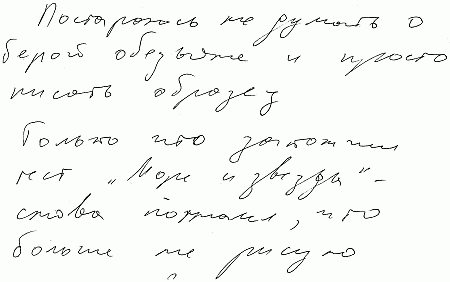 Постараюсь не думать о
белой обезьяне и просто
писать образец
Только что закончил
тест „Море и звезды" -
снова понял, что
больше не рисую